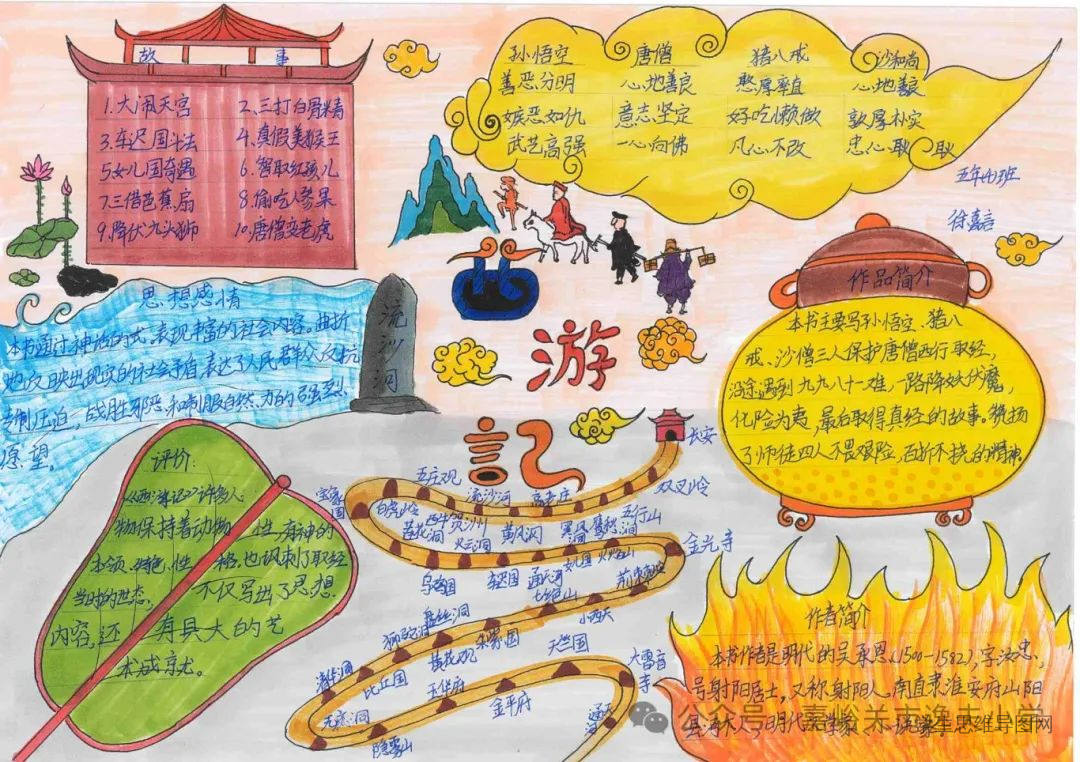 故 事
1.大闹天宫 2.三打白骨精
3.车迟国斗法 4.真假美猴王
5女儿国奇遇 6.智取红孩儿
7.三借芭蕉扇 8.偷吃人参果
9.降伏九头狮 10.唐僧变老虎
孙悟空 唐僧 猪八戒 沙和尚
善恶分明 心地善良 憨厚率直 心地善良
嫉恶如仇 意志坚定 好吃懒做 敦厚朴实
武艺高强 一心向佛 凡心不改 忠心耿耿
五年(4)班
徐嘉言
西
游
記
思想感情
本书通过神话的形式,表现丰富的社会内容,曲折
地反映出现实的社会矛盾,表达了人民群众反抗
专制压迫,战胜邪恶,和制服自然力的强烈
愿望。
流沙洞
作品简介
本书主要写孙悟空、猪八
戒、沙僧三人保护唐僧西行取经,
沿途遇到九九八十一难,一路降妖伏魔,
化险为夷,最后取得真经的故事。赞扬
了师徒四人不畏艰险,百折不挠的精神
评价:
《西游记》许多人
物保持着动物 性,有神的
本领 性 格,也讽刺了取经
当时的世态, 不仅写出了思想
内容,还 有具大的艺
术成就。
长安
双叉岭
五行山
鹰愁涧
黑风洞
高老庄
流沙河
五庄观
白虎岭
宝象国
莲花洞
火云洞
黄风洞
金光寺
火焰山
女儿国
通天河
车迟国
乌鸡国
荆棘岭
小西天
七绝山
朱紫国
盘丝洞
黄花观
狮驼洞
比丘国
清华洞
无底洞
隐雾山
玉华府
金平府
天竺国
大雷音寺
通天河
作者简介
本书作者是明代的吴承恩(1500-1582),字汝忠,
号射阳居士,又称射阳人,南直隶淮安府山阳
县清大人,明代文学家、小说家。
公众号·嘉峪关市逸夫小学
学生思维导图网